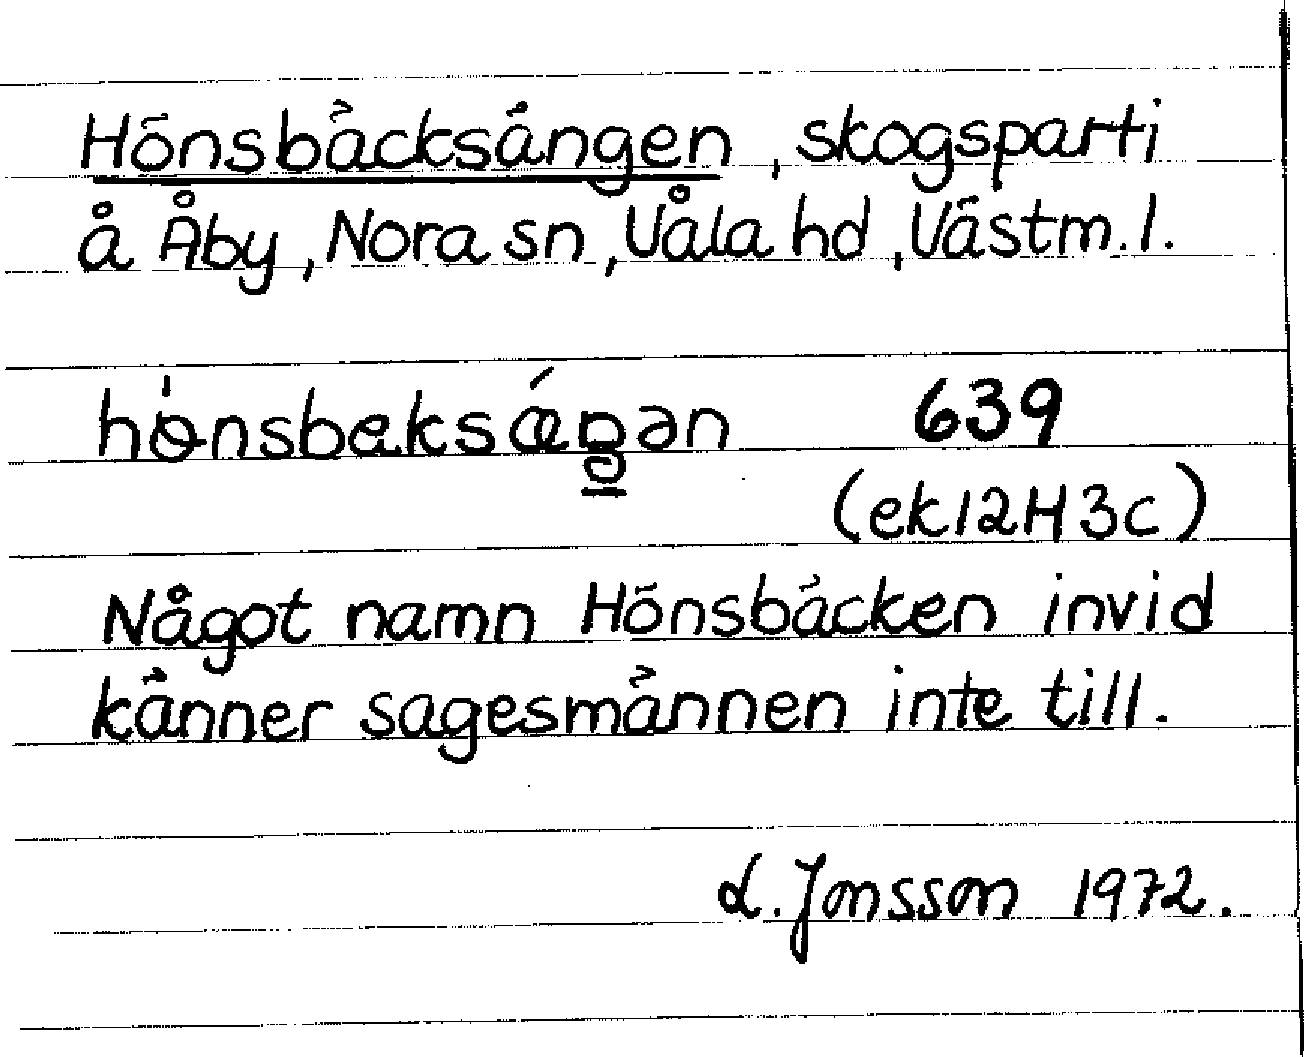 Hönsbäcksängen, skogsparti
å Åby, Nora sn, Våla hd, Västm. l.
639
(ek 12H3c)
Något namn Hönsbäcken invid
känner sagesmännen inte till.
L. Jonsson 1972.